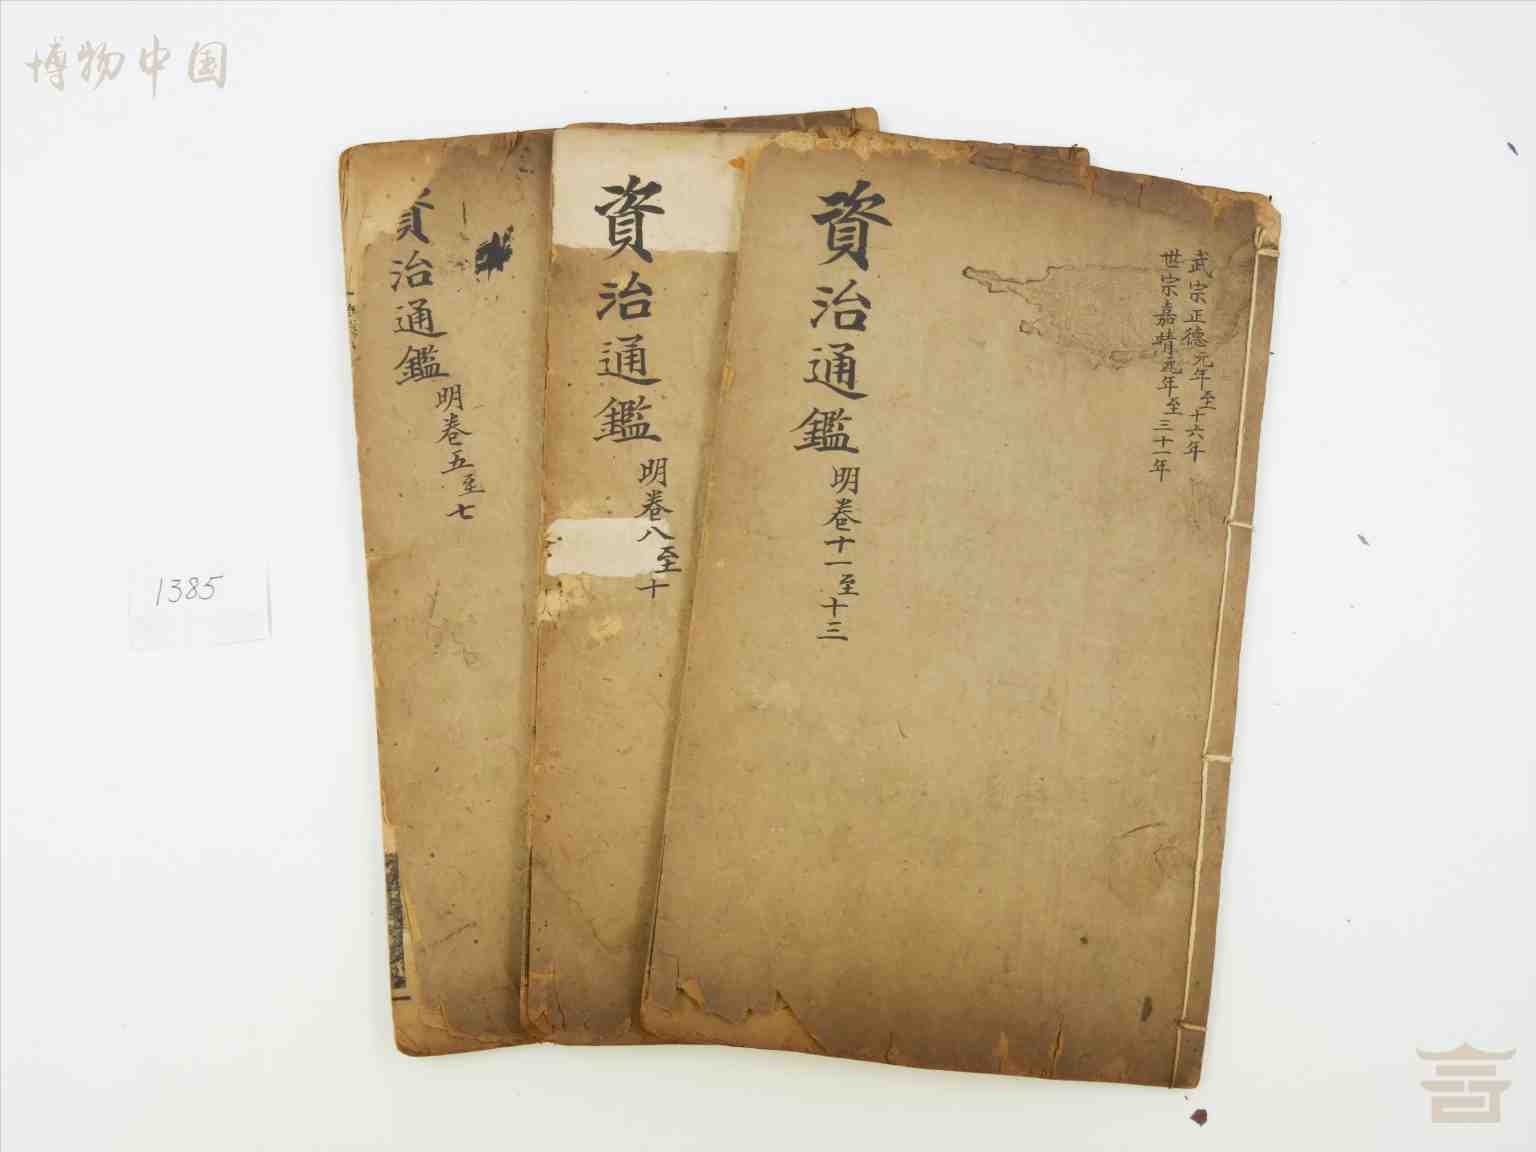 博物中国
資治通鑑
明卷五至七
資治通鑑
明卷八至十
資治通鑑
明卷十一至十三
武宗正德元年至十六年
世宗嘉靖元年至三十一年
1385